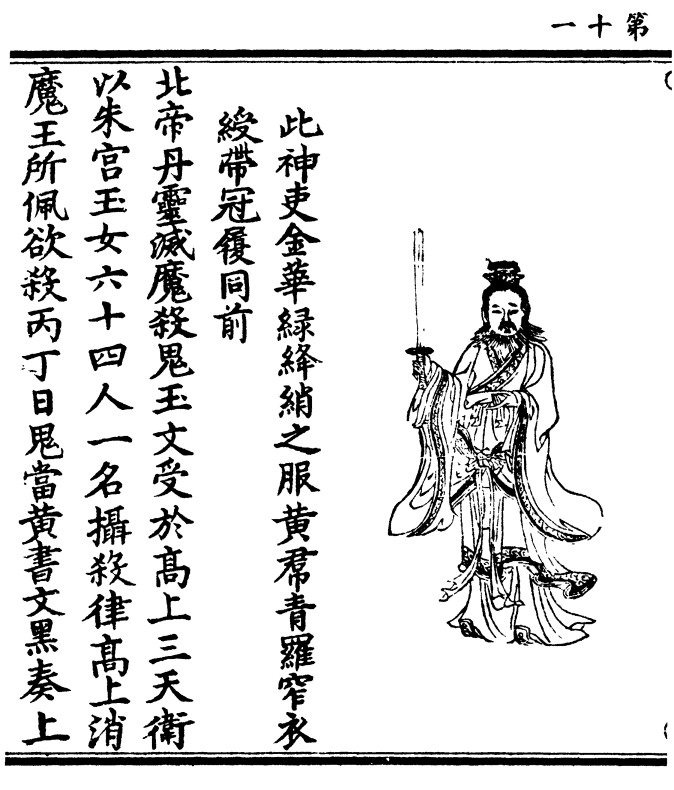 第十一
此神吏金華綠絳綃之服黃帬青羅窄衣
綬帶冠履同前
北帝丹靈滅魔殺鬼玉文受於髙上三天衛
以朱宮玉女六十四人一名攝殺律髙上消
魔王所佩欲殺丙丁日鬼當黃書文黑奏上